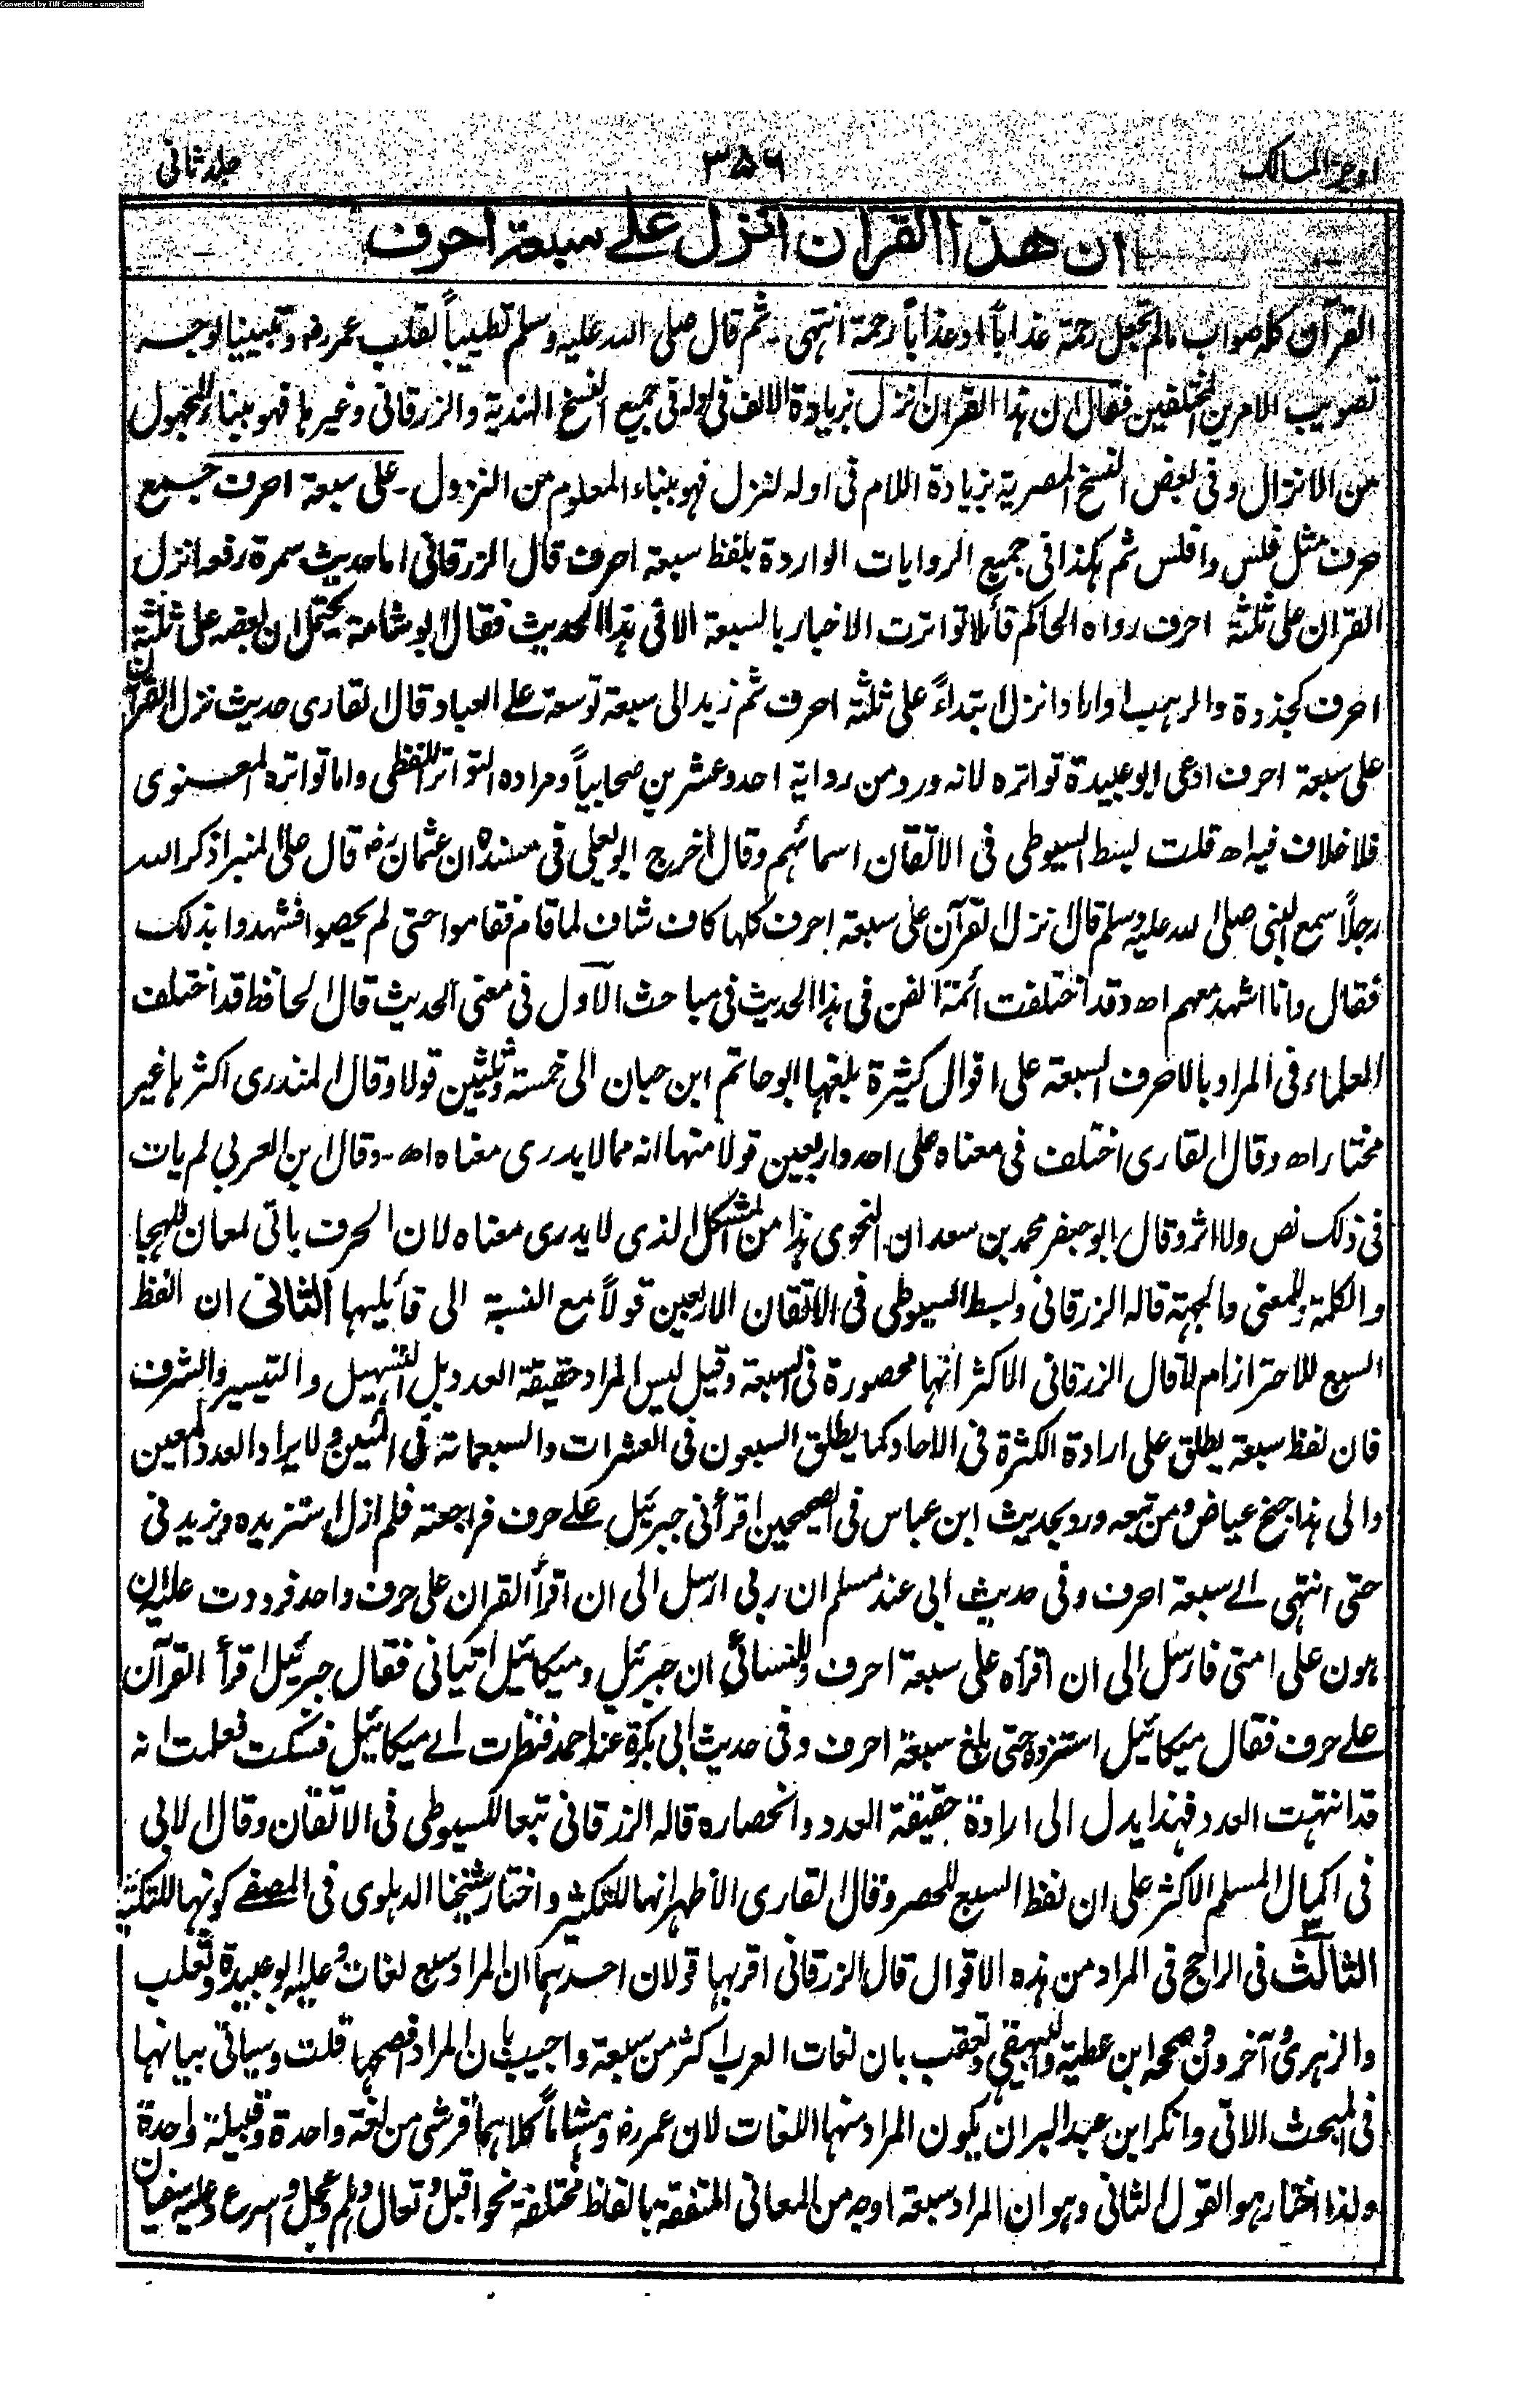 Converted by Tiff Combine - unregistered
اوجز المسالک ۳۵۶ جلد ثانی
ان هذا القرآن انزل علے سبعة احرف
القرآن کله صواب مالم تجعل رحمة عذاباً او عذاباً رحمة انتهى ۔ ثم قال صلی الله علیه وسلم تطییباً لقلب عمر رض وتبیینا لوجه
تصویب الامرین المختلفین فقال ان هذا القرآن انزل بزیادة الالف فی اوله فی جمیع النسخ الهندیة والزرقانی وغیرها فهو ببناء المجهول
من الانزال وفی بعض النسخ المصریة بزیادة اللام فی اوله لنزل فهو ببناء المعلوم من النزول ۔ علی سبعة احرف جمع
حرف مثل فلس وافلس ثم هکذا فی جمیع الروایات الواردة بلفظ سبعة احرف قال الزرقانی اما حدیث سمرة رفعه انزل
القران علی ثلثة احرف رواه الحاکم قائلا تواترت الاخبار بالسبعة الا فی هذا الحدیث فقال ابو شامة یحتمل ان بعضه علی ثلثة
احرف کجذوة والرهب او اراد انزل ابتداءً علی ثلثة احرف ثم زید الی سبعة توسعة علے العباد قال القاری حدیث نزل القرآن
علی سبعة احرف ادعی ابو عبیدة تواتره لانه ورد من روایة احد وعشرین صحابیاً ومراده التواتر اللفظی واما تواتره المعنوی
فلا خلاف فیه اھ قلت بسط السیوطی فی الاتقان اسمائهم وقال اخرج ابو یعلی فی مسنده ان عثمان رض قال علی المنبر اذکر الله
رجلاً سمع النبی صلی الله علیه وسلم قال نزل القرآن علی سبعة احرف کلها کاف شاف لما قام فقاموا حتی لم یحصوا فشهدوا بذلک
فقال وانا اشهد معهم اھ وقد اختلفت ائمة الفن فی هذا الحدیث فی مباحث الاول فی معنی الحدیث قال الحافظ قد اختلف
العلماء فی المراد بالاحرف السبعة علی اقوال کثیرة بلغها ابو حاتم ابن حبان الی خمسة وثلثین قولا وقال المنذری اکثرها غیر
مختار اھ وقال القاری اختلف فی معناه علی احد واربعین قولا منها انه مما لا یدری معناه اھ ۔ وقال ابن العربی لم یات
فی ذلک نص ولا اثر وقال ابو جعفر محمد بن سعدان النحوی هذا من المشکل الذی لا یدری معناه لان الحرف یاتی لمعان للهجا
والکلمة وللمعنی والجهة قاله الزرقانی وبسط السیوطی فی الاتقان الاربعین قولاً مع النسبة الی قائلیها الثانی ان لفظ
السبع للاحتراز ام لا قال الزرقانی الاکثر انها محصورة فی السبعة وقیل لیس المراد حقیقة العدد بل التسهیل والتیسیر والشرف
فان لفظ سبعة یطلق علی ارادة الکثرة فی الاحاد کما یطلق السبعون فی العشرات والسبعمائة فی المئین ولا یراد العدد المعین
والی هذا جنح عیاض ومن تبعه ورد بحدیث ابن عباس فی الصحیحین اقرأنی جبرئیل علے حرف فراجعته فلم ازل استزیده ویزید نی
حتی انتهی الے سبعة احرف وفی حدیث ابی عند مسلم ان ربی ارسل الی ان اقرأ القران علی حرف واحد فرددت علیه ان
هون علی امتی فارسل الی ان اقرأه علی سبعة احرف وللنسائی ان جبرئیل ومیکائیل اتیانی فقال جبرئیل اقرأ القرآن
علے حرف فقال میکائیل استزده حتی بلغ سبعة احرف وفی حدیث ابی بکرة عند احمد فنظرت الے میکائیل فسکت فعلمت انه
قد انتهت العدد فهذا یدل الی ارادة حقیقة العدد وانحصاره قاله الزرقانی تبعا للسیوطی فی الاتقان وقال الابی
فی اکمال المسلم الاکثر علی ان لفظ السبع للحصر وقال القاری الاظهر انها للتکثیر واختار شیخنا الدهلوی فی المصفے کونها للتکثیر
الثالث فی الراجح فی المراد من هذه الاقوال قال الزرقانی اقربها قولان احدهما ان المراد سبع لغات وعلیه ابو عبیدة وثعلب
والزهری وآخرون وصححه ابن عطیة والبیهقی وتعقب بان لغات العرب اکثر من سبعة واجیب بان المراد افصحها قلت وسیاتی بیانها
فی المبحث الاتی وانکر ابن عبد البر ان یکون المراد منها اللغات لان عمر رض وهشاماً کلاهما قرشی من لغة واحدة وقبیلة واحدة
ولذا اختار هو القول الثانی وهو ان المراد سبعة اوجه من المعانی المتفقة بالفاظ مختلفة نحو اقبل وتعال وهلم وعجل واسرع وعلیه سفیان